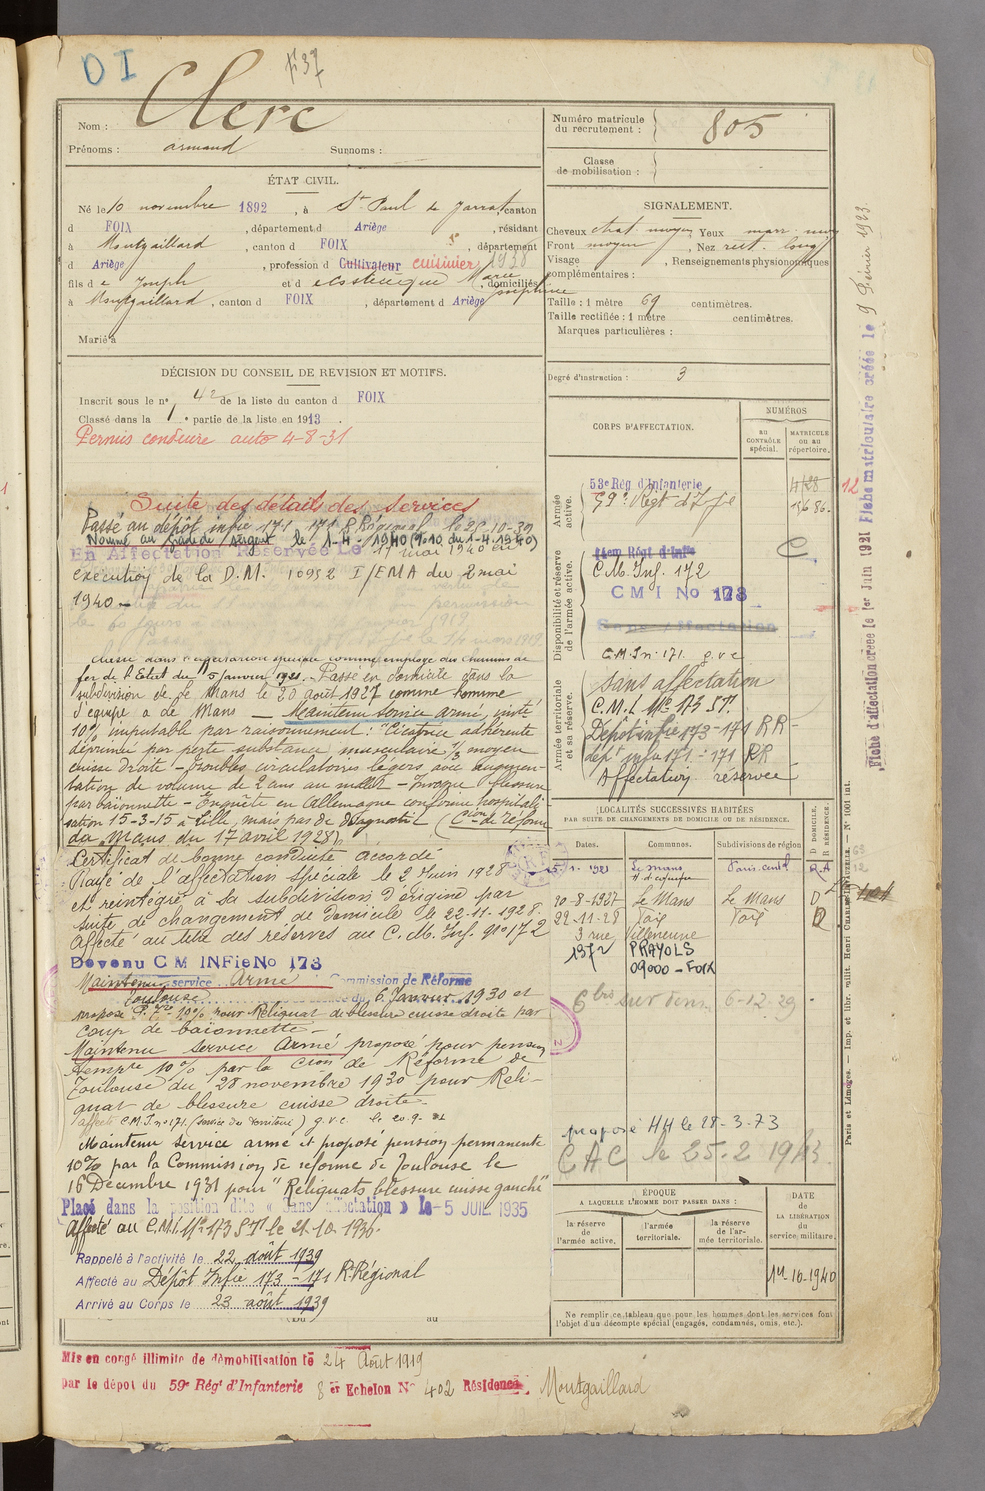 D I
F 37
Nom : Clerc
Prénoms : armand Surnoms :
ÉTAT CIVIL.
Né le 10 novembre 1892, à St Paul de Jarrat, canton
d FOIX, département d Ariège, résidant
à Montgaillard, canton d FOIX, département
d Ariège, profession d Cultivateur cuisinier 1938
fils de Joseph et d Marie Joséphine, domiciliés
à Montgaillard, canton d FOIX, département d Ariège
Marié à
DÉCISION DU CONSEIL DE REVISION ET MOTIFS.
Inscrit sous le n° 42 de la liste du canton d FOIX
Classé dans la 1e partie de la liste en 1913.
Permis conduire auto 4-8-31
Suite des détails des services
Passé au dépôt infie 171 - 171 R Régional le 26-10-39
Nommé au Grade de sergent le 1-4-1940 (9.10 du 1-4-1940)
En Affectation Réservée Le 17 mai 1940 en
exécution de la D.M. 10952 I/EMA du 2 mai
1940 -
Classé dans l'affectation spéciale comme employé des chemins de
fer de l'Etat du 5 janvier 1921. Passé en domicile dans la
subdivision de Le Mans le 20 août 1927 comme homme
d'équipe à Le Mans — Maintenu service armé, invté
10% imputable par raisonnement : "Cicatrice adhérente
déprimée par perte substance musculaire 1/3 moyen
cuisse droite - troubles circulatoires légers avec augmen-
tation de volume de 2 cms au mollet - Invoque blessure
par baïonnette - Enquête en Allemagne confirme hospitali-
sation 15-3-15 à Lille, mais pas de diagnostic (Cion de réforme
du Mans du 17 avril 1928)
Certificat de bonne conduite accordé
Rayé de l'affectation spéciale le 2 Juin 1928
et réintégré à sa subdivision d'origine par
suite de changement de domicile le 22-11-1928.
Affecté au titre des réserves au C.M. Inf. n° 172
Devenu CM INFie No 173
Maintenu service Armé Commission de Réforme
Toulouse 6 Janvier 1930 et
proposé P. Tre 10% pour Reliquat de blessure cuisse droite par
coup de baïonnette -
Maintenu Service Armé proposé pour pension
tempre 10% par la Cion de Réforme de
Toulouse du 28 novembre 1930 pour Reli-
quat de blessure cuisse droite -
affecté C.M.I. n° 171 (service du territoire) g.v.c. le 20-9-31
Maintenu service armé et proposé pension permanente
10% par la Commission de réforme de Toulouse le
16 Décembre 1931 pour "Reliquats blessure cuisse gauche"
Placé dans la position dite « Sans affectation » Le -5 JUIL 1935
Affecté au C.M.I. N° 173 S.T. le 21-10-1936.
Rappelé à l'activité le 22 août 1939
Affecté au Dépôt Infie 173 - 171 R Régional
Arrivé au Corps le 23 août 1939
Mis en congé illimité de démobilisation le 24 Août 1919
par le dépôt du 59e Régt d'Infanterie 8 er Echelon N° 402 Résidence, Montgaillard
Numéro matricule du recrutement : 805
Classe de mobilisation :
SIGNALEMENT.
Cheveux chat. moyen Yeux marr. moy
Front moyen, Nez rect. long
Visage , Renseignements physionomiques
complémentaires :
Taille : 1 mètre 69 centimètres.
Taille rectifiée : 1 mètre centimètres.
Marques particulières :
Degré d'instruction : 3
CORPS D'AFFECTATION.
NUMÉROS
AU CONTRÔLE SPÉCIAL.
MATRICULE OU AU RÉPERTOIRE.
Armée active.
53e Rég d'Infanterie
59e Régt d'Ife
12
Disponibilité et réserve de l'armée active.
C.M. Inf. 172
C
C M I No 173
Sans Affectation
C.M. In. 171. g.v.c
Armée territoriale et sa réserve.
Sans affectation
C.M.I. N° 173 ST.
Dépôt infie 173-171 RR -
dépt infie 171 - 171 RR
Affectation réservée
LOCALITÉS SUCCESSIVES HABITÉES
PAR SUITE DE CHANGEMENTS DE DOMICILE OU DE RÉSIDENCE.
Dates. Communes. Subdivisions de région
D DOMICILE. R RÉSIDENCE.
1921 Le Mans
20-8-1927 Le Mans Le Mans D
22-11-28 Foix Foix D
3 rue Villeneuve
1972 PRAYOLS
09000 - FOIX
6-12-29
proposé HH le 28-3-73
CAC le 25-2 1943.
ÉPOQUE
A LAQUELLE L'HOMME DOIT PASSER DANS :
la réserve de l'armée active.
l'armée territoriale.
la réserve de l'armée territoriale.
DATE de LA LIBÉRATION du service militaire.
14-10-1940
Ne remplir ce tableau que pour les hommes dont les services font
l'objet d'un décompte spécial (engagés, condamnés, omis, etc.).
Fiche d'affectation créée le 1er Juin 1921 Fiche matriculaire créée le 9 Février 1923.
Paris et Limoges. — Imp. et libr. milit. Henri CHARLES-LAVAUZELLE. — N° 1001 int.